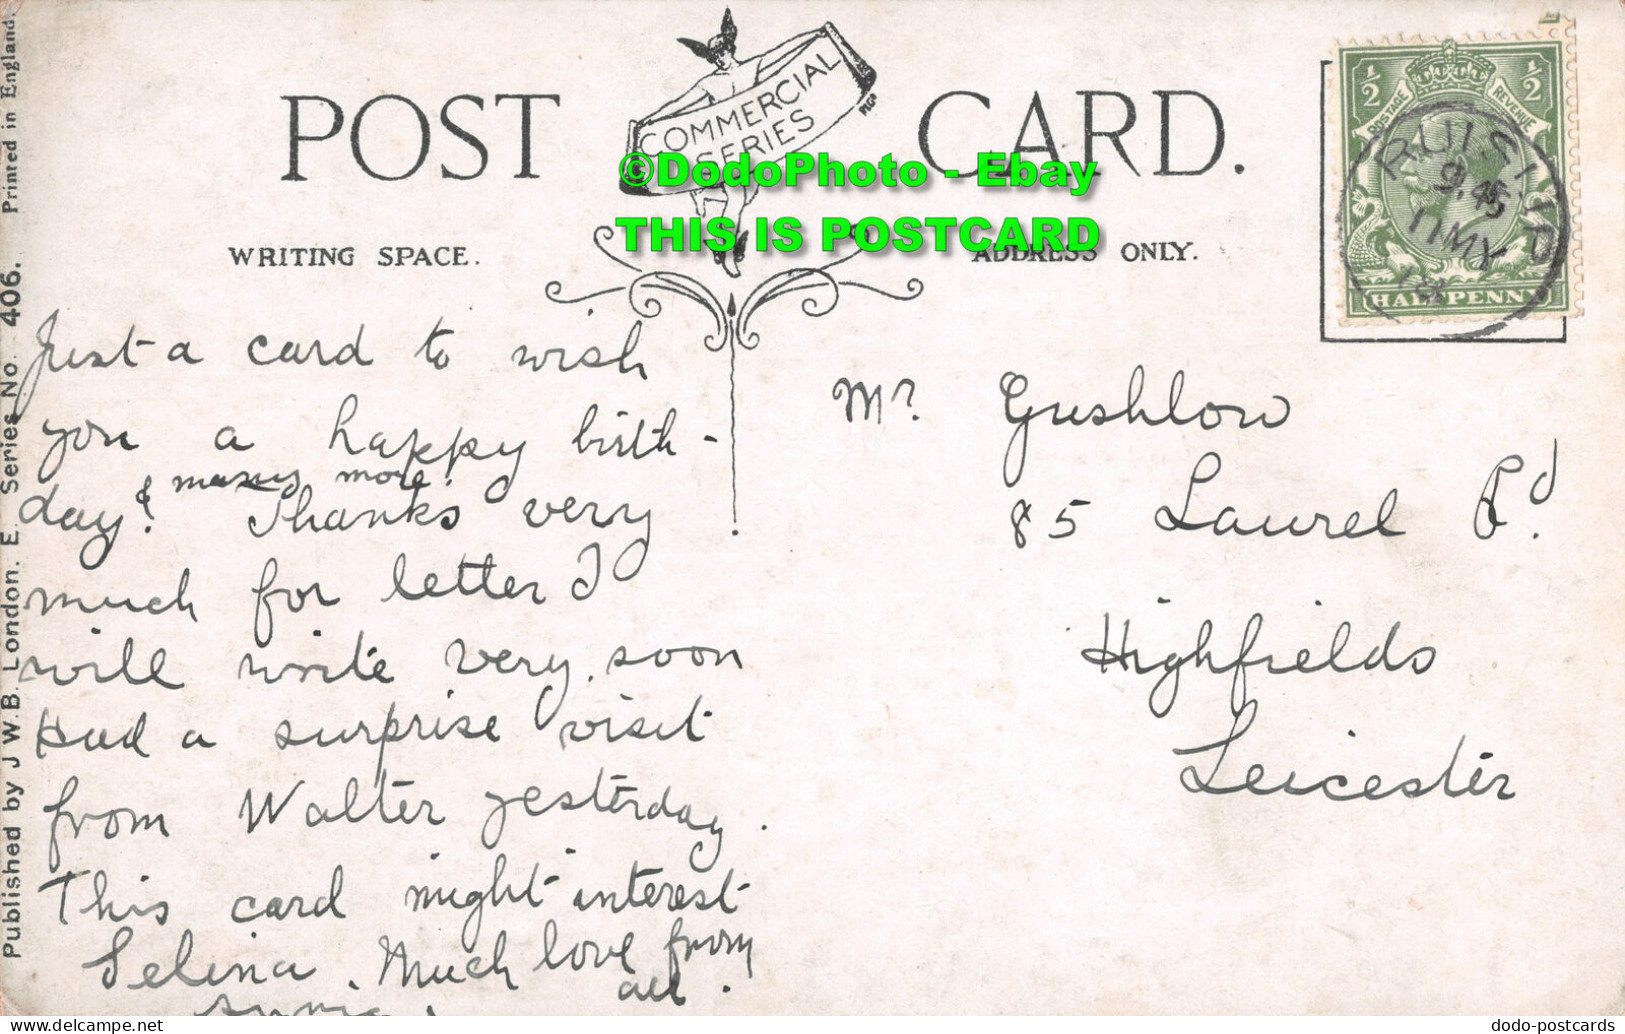 POST CARD.
COMMERCIAL
SERIES
©DodoPhoto - Ebay
THIS IS POSTCARD
WRITING SPACE.
ADDRESS ONLY.
Published by J.W.B. London. E. Series No. 406. Printed in England.
Just a card to wish
you a happy birth-
day! & many more.
Thanks very
much for letter I
will write very soon
Had a surprise visit
from Walter yesterday.
This card might interest
Selina. Much love from
all.
Annie.
Mr. Gushlow
85 Laurel Rd.
Highfields
Leicester
1/2 1/2
POSTAGE REVENUE
HALFPENNY
RUISLIP
9.45
11 MY
dodo-postcards